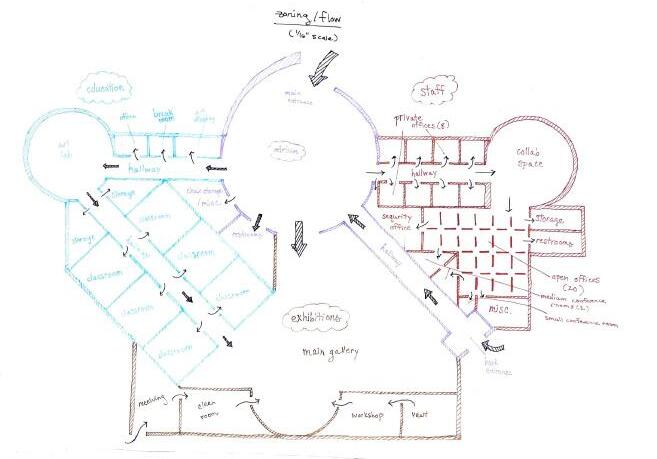 zoning/flow
(1/16" scale)
main
entrance
education
staff
office
break
room
art
display
private
offices (8)
art
lab
atrium
collab
space
hallway
hallway
storage
storage
classroom
security
office
storage
restrooms
restrooms
hallway
classroom
classroom
classroom
classroom
classroom
open offices
(20)
medium conference
rooms (2)
small conference room
misc.
exhibitions
main gallery
back
entrance
receiving
clean
room
workshop
vault